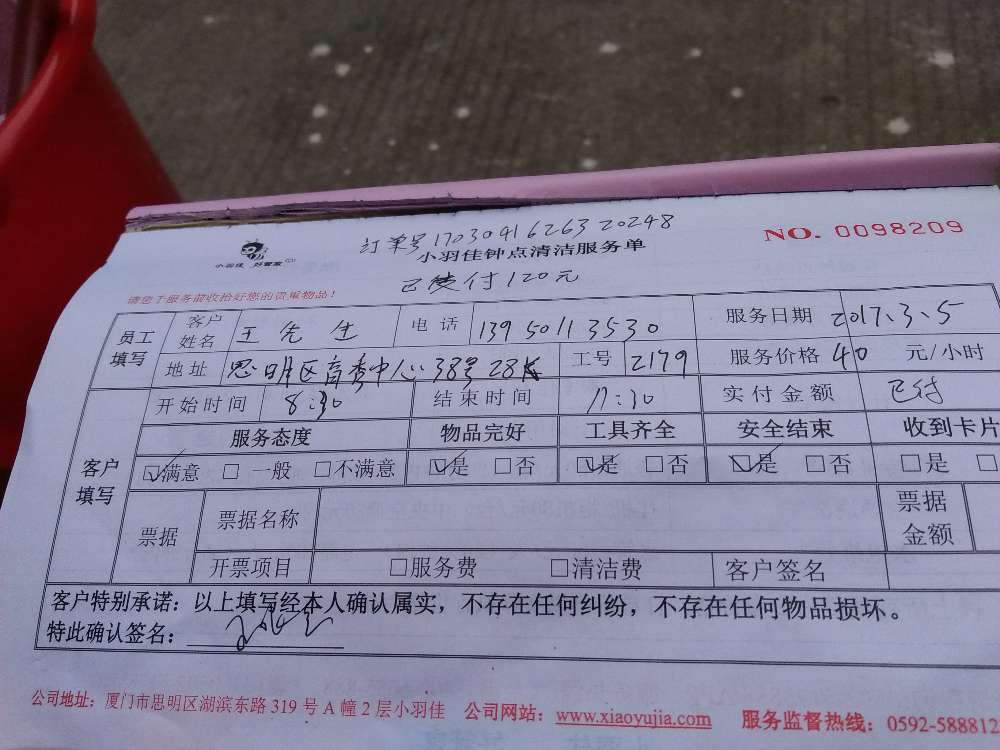 订单号17030916263 20248
NO. 0098209
小羽佳 好管家
小羽佳钟点清洁服务单
已付120元
请您于服务前收拾好您的贵重物品！
员工填写 客户姓名 王先生 电话 13950113530 服务日期 2017.3.5
地址 思明区育秀中心38号28 工号 2179 服务价格 40 元/小时
开始时间 8:30 结束时间 11:30 实付金额 已付
客户填写 服务态度 物品完好 工具齐全 安全结束 收到卡片
☑满意 □一般 □不满意 ☑是 □否 ☑是 □否 ☑是 □否 □是 □
票据 票据名称 票据金额
开票项目 □服务费 □清洁费 客户签名
客户特别承诺：以上填写经本人确认属实，不存在任何纠纷，不存在任何物品损坏。
特此确认签名：
公司地址：厦门市思明区湖滨东路319号A幢2层小羽佳 公司网站：www.xiaoyujia.com 服务监督热线：0592-588812